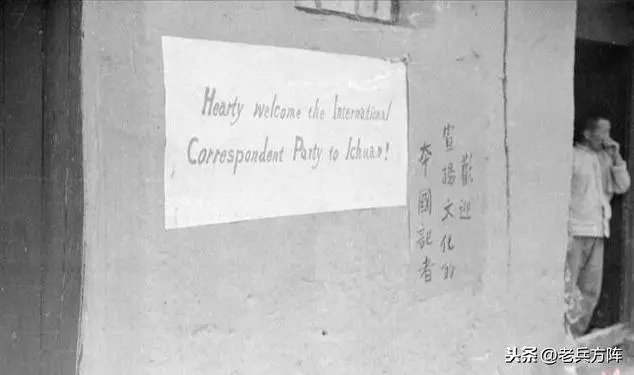 Hearty welcome the International
Correspondent Party to Ichuan!
歡迎
宣揚文化的
本國記者
头条 @老兵方阵